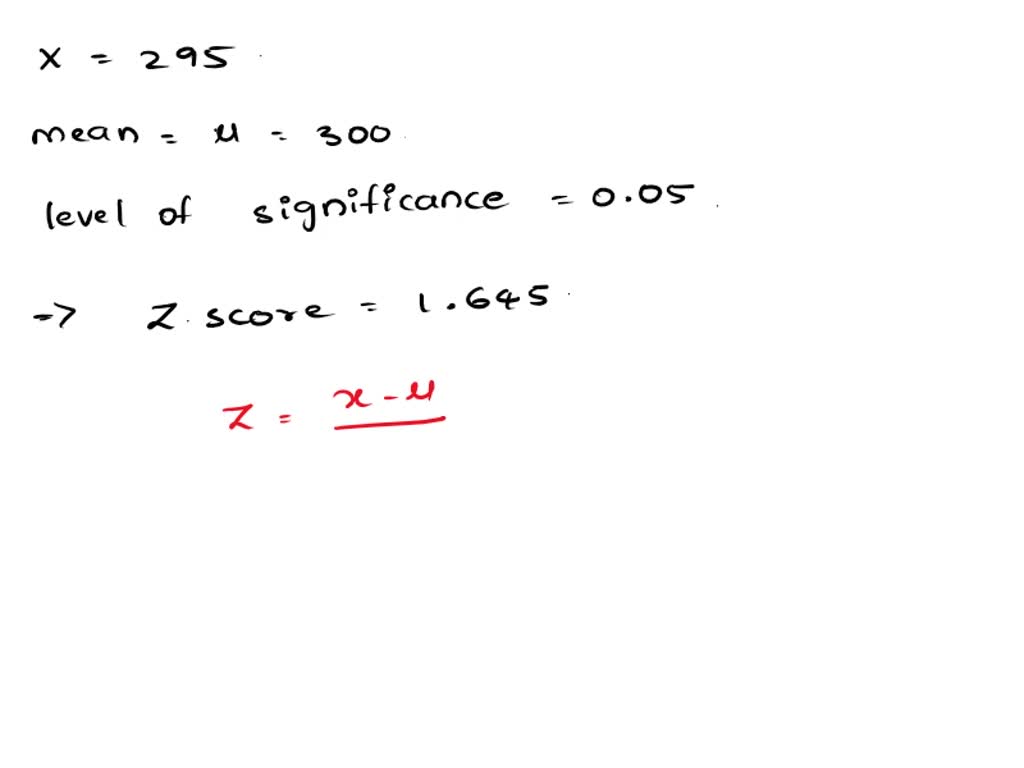 x = 295
mean = μ = 300
level of significance = 0.05
=> Z score = 1.645
Z = x - μ